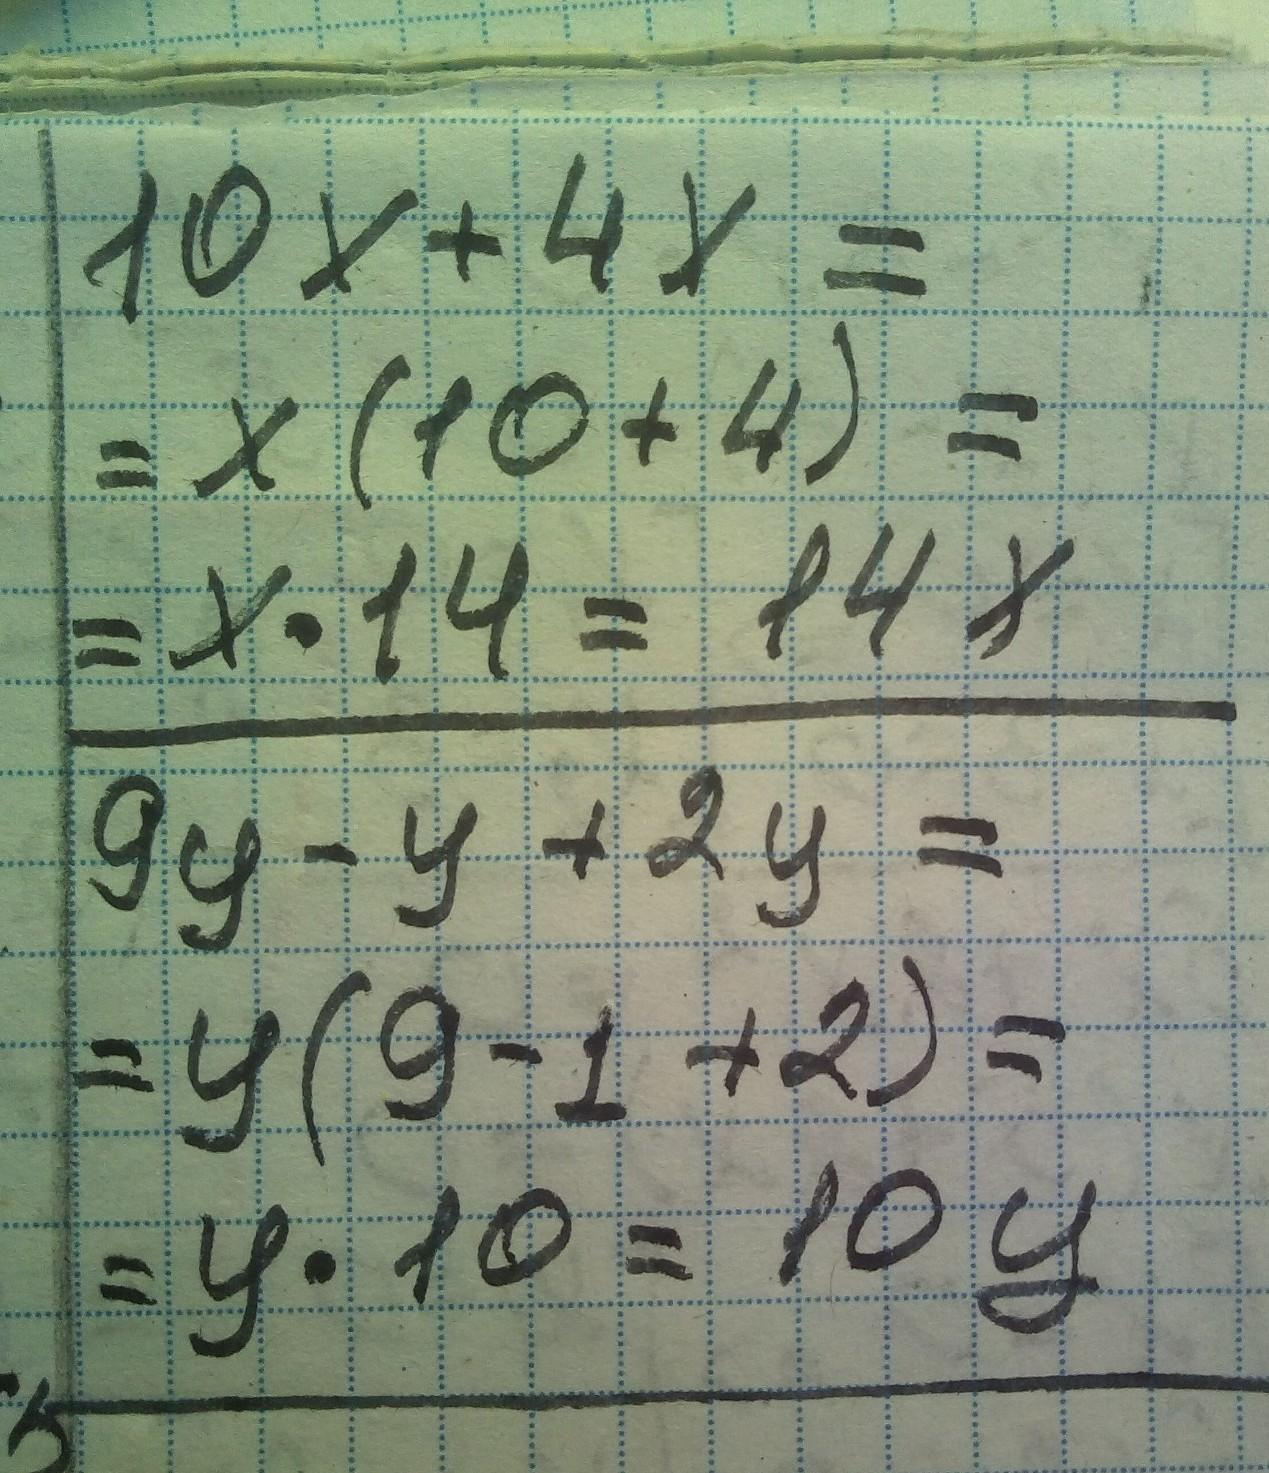 10x + 4x =
= x (10 + 4) =
= x · 14 = 14x
9y - y + 2y =
= y (9 - 1 + 2) =
= y · 10 = 10y